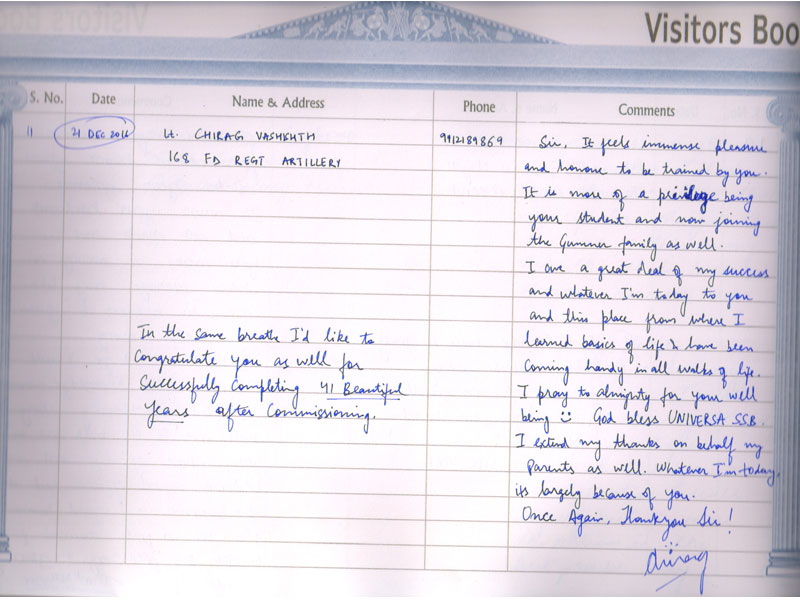 Visitors Boo
S. No.
Date
Name & Address
Phone
Comments
11
21 DEC 2016
Lt. CHIRAG VASHISHTH
168 FD REGT ARTILLERY
9912189869
Sir, It feels immense pleasure
and honour to be trained by you.
It is more of a privilege being
your student and now joining
the Gunner family as well.
I owe a great deal of my success
and whatever I'm today to you
and this place from where I
learned basics of life & have been
coming handy in all walks of life.
I pray to almighty for your well
being God bless UNIVERSA SSB.
I extend my thanks on behalf my
Parents as well. Whatever I'm today,
its largely because of you.
Once Again, Thankyou Sir!
Chirag
In the same breath I'd like to
Congratulate you as well for
Successfully Completing 41 Beautiful
Years after Commissioning.